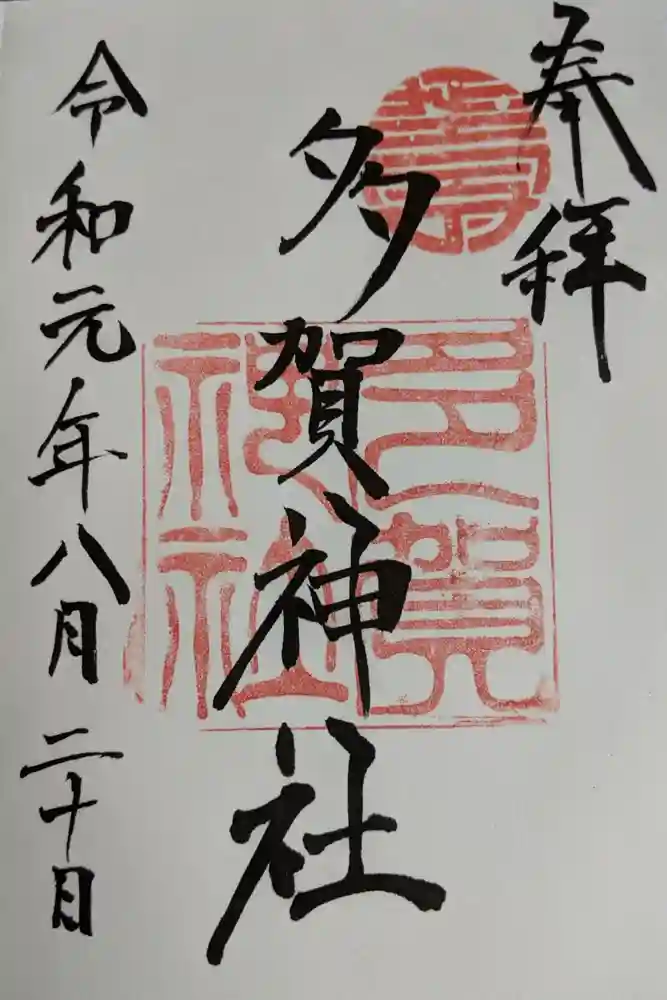 奉拝
多賀神社
令和元年八月二十日
壽
多賀神社